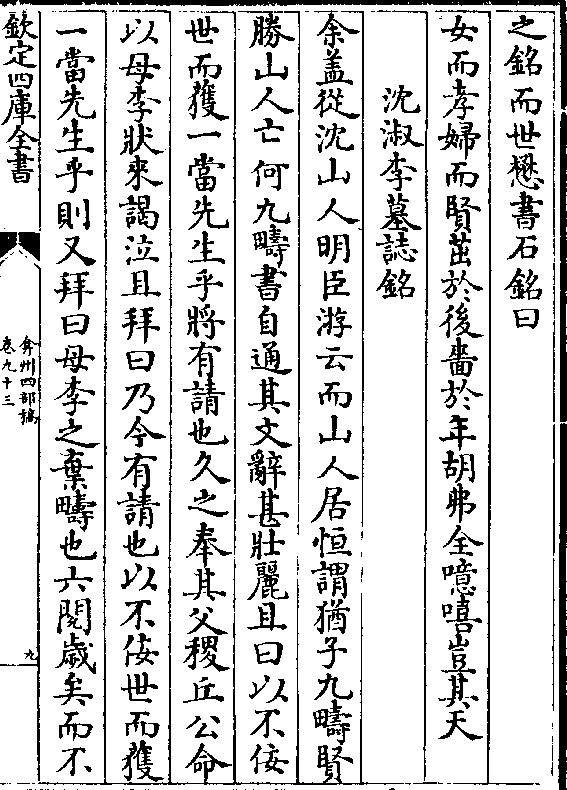 之銘而世懋書石銘曰
女而孝婦而賢茁於後嗇於年胡弗全噫嘻豈其天
沈淑李墓誌銘
余盖從沈山人明臣游云而山人居恒謂猶子九疇賢
勝山人亡何九疇書自通其文辭甚壯麗且曰以不佞
世而獲一當先生乎將有請也久之奉其父稷丘公命
以母李狀來謁泣且拜曰乃今有請也以不佞世而獲
一當先生乎則又拜曰母李之棄疇也六閱歲矣而不
欽定四庫全書
弇州四部稿
卷九十三
九